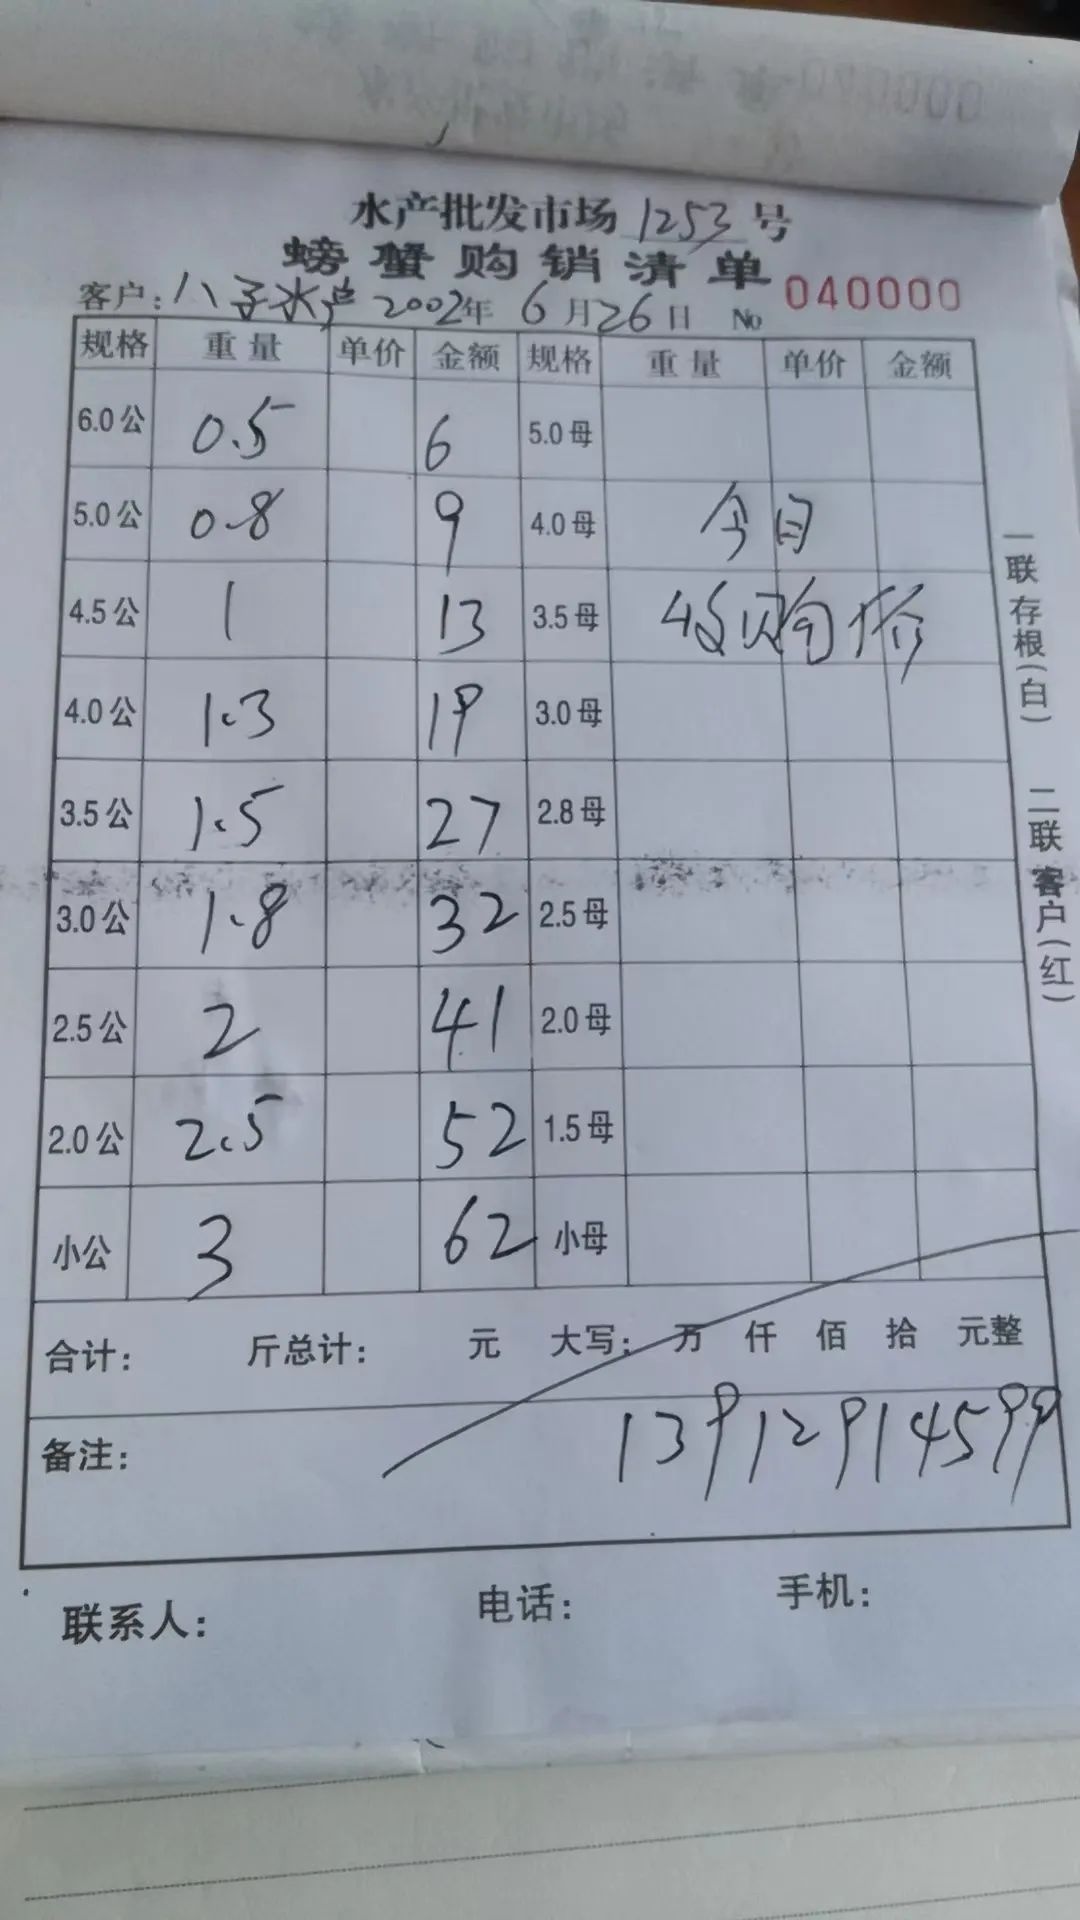 水产批发市场 1253 号
螃蟹购销清单
客户：八子水产 2002年 6月26日 No 040000
规格 重量 单价 金额 规格 重量 单价 金额
6.0公 0.5 6 5.0母
5.0公 0.8 9 4.0母 今日
4.5公 1 13 3.5母 收购价
4.0公 1.3 19 3.0母
3.5公 1.5 27 2.8母
3.0公 1.8 32 2.5母
2.5公 2 41 2.0母
2.0公 2.5 52 1.5母
小公 3 62 小母
合计： 斤总计： 元 大写： 万 仟 佰 拾 元整
备注： 13912914599
联系人： 电话： 手机：
一联存根(白) 二联客户(红)